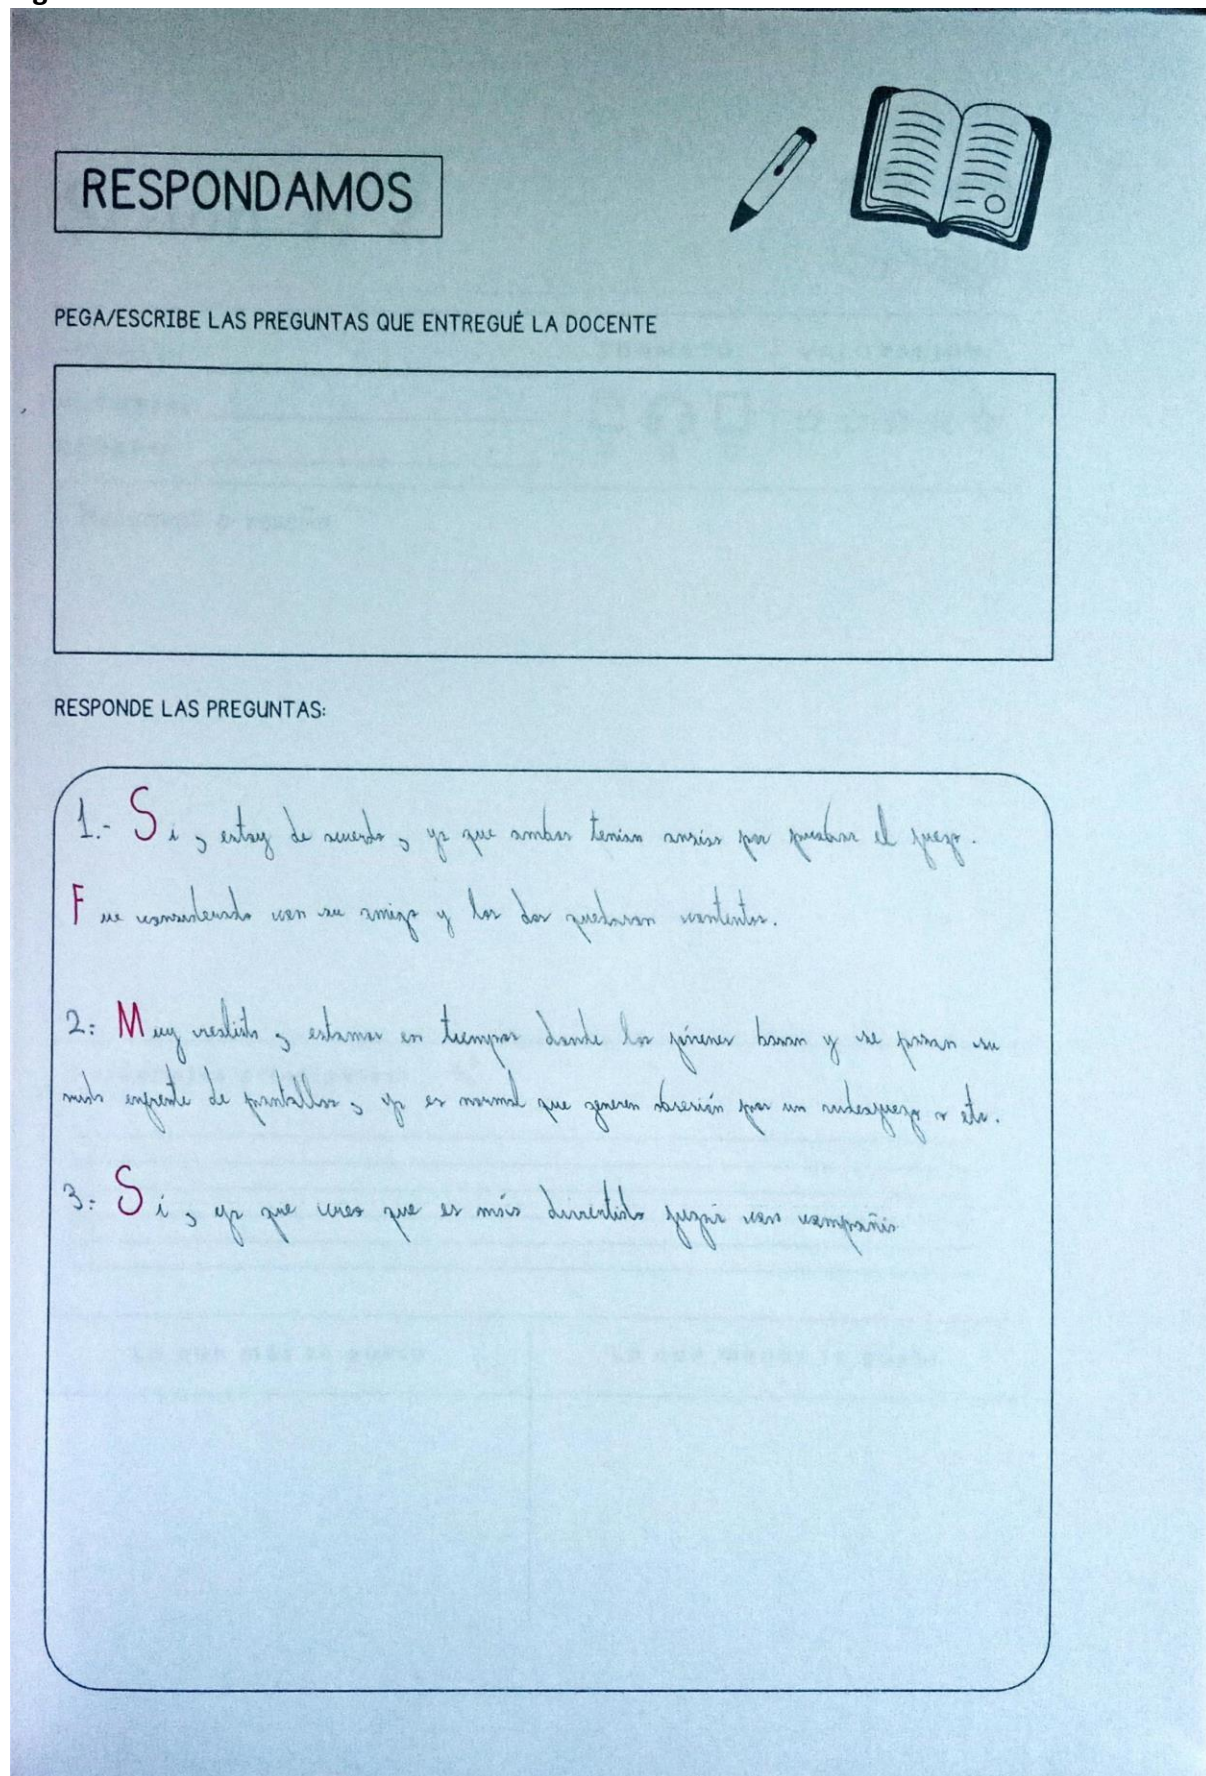 RESPONDAMOS
PEGA/ESCRIBE LAS PREGUNTAS QUE ENTREGUÉ LA DOCENTE
RESPONDE LAS PREGUNTAS:
1.- Si, estoy de acuerdo, ya que ambos tenian ansias por probar el juego.
Fue considerado con su amigo y los dos quedaron contentos.
2: Muy realista, estamos en tiempos donde los jóvenes basan y se pasan su
vida enfrente de pantallas, ya es normal que generen obsesión por un videojuego o etc.
3: Si, ya que creo que es más divertido jugar con compañia